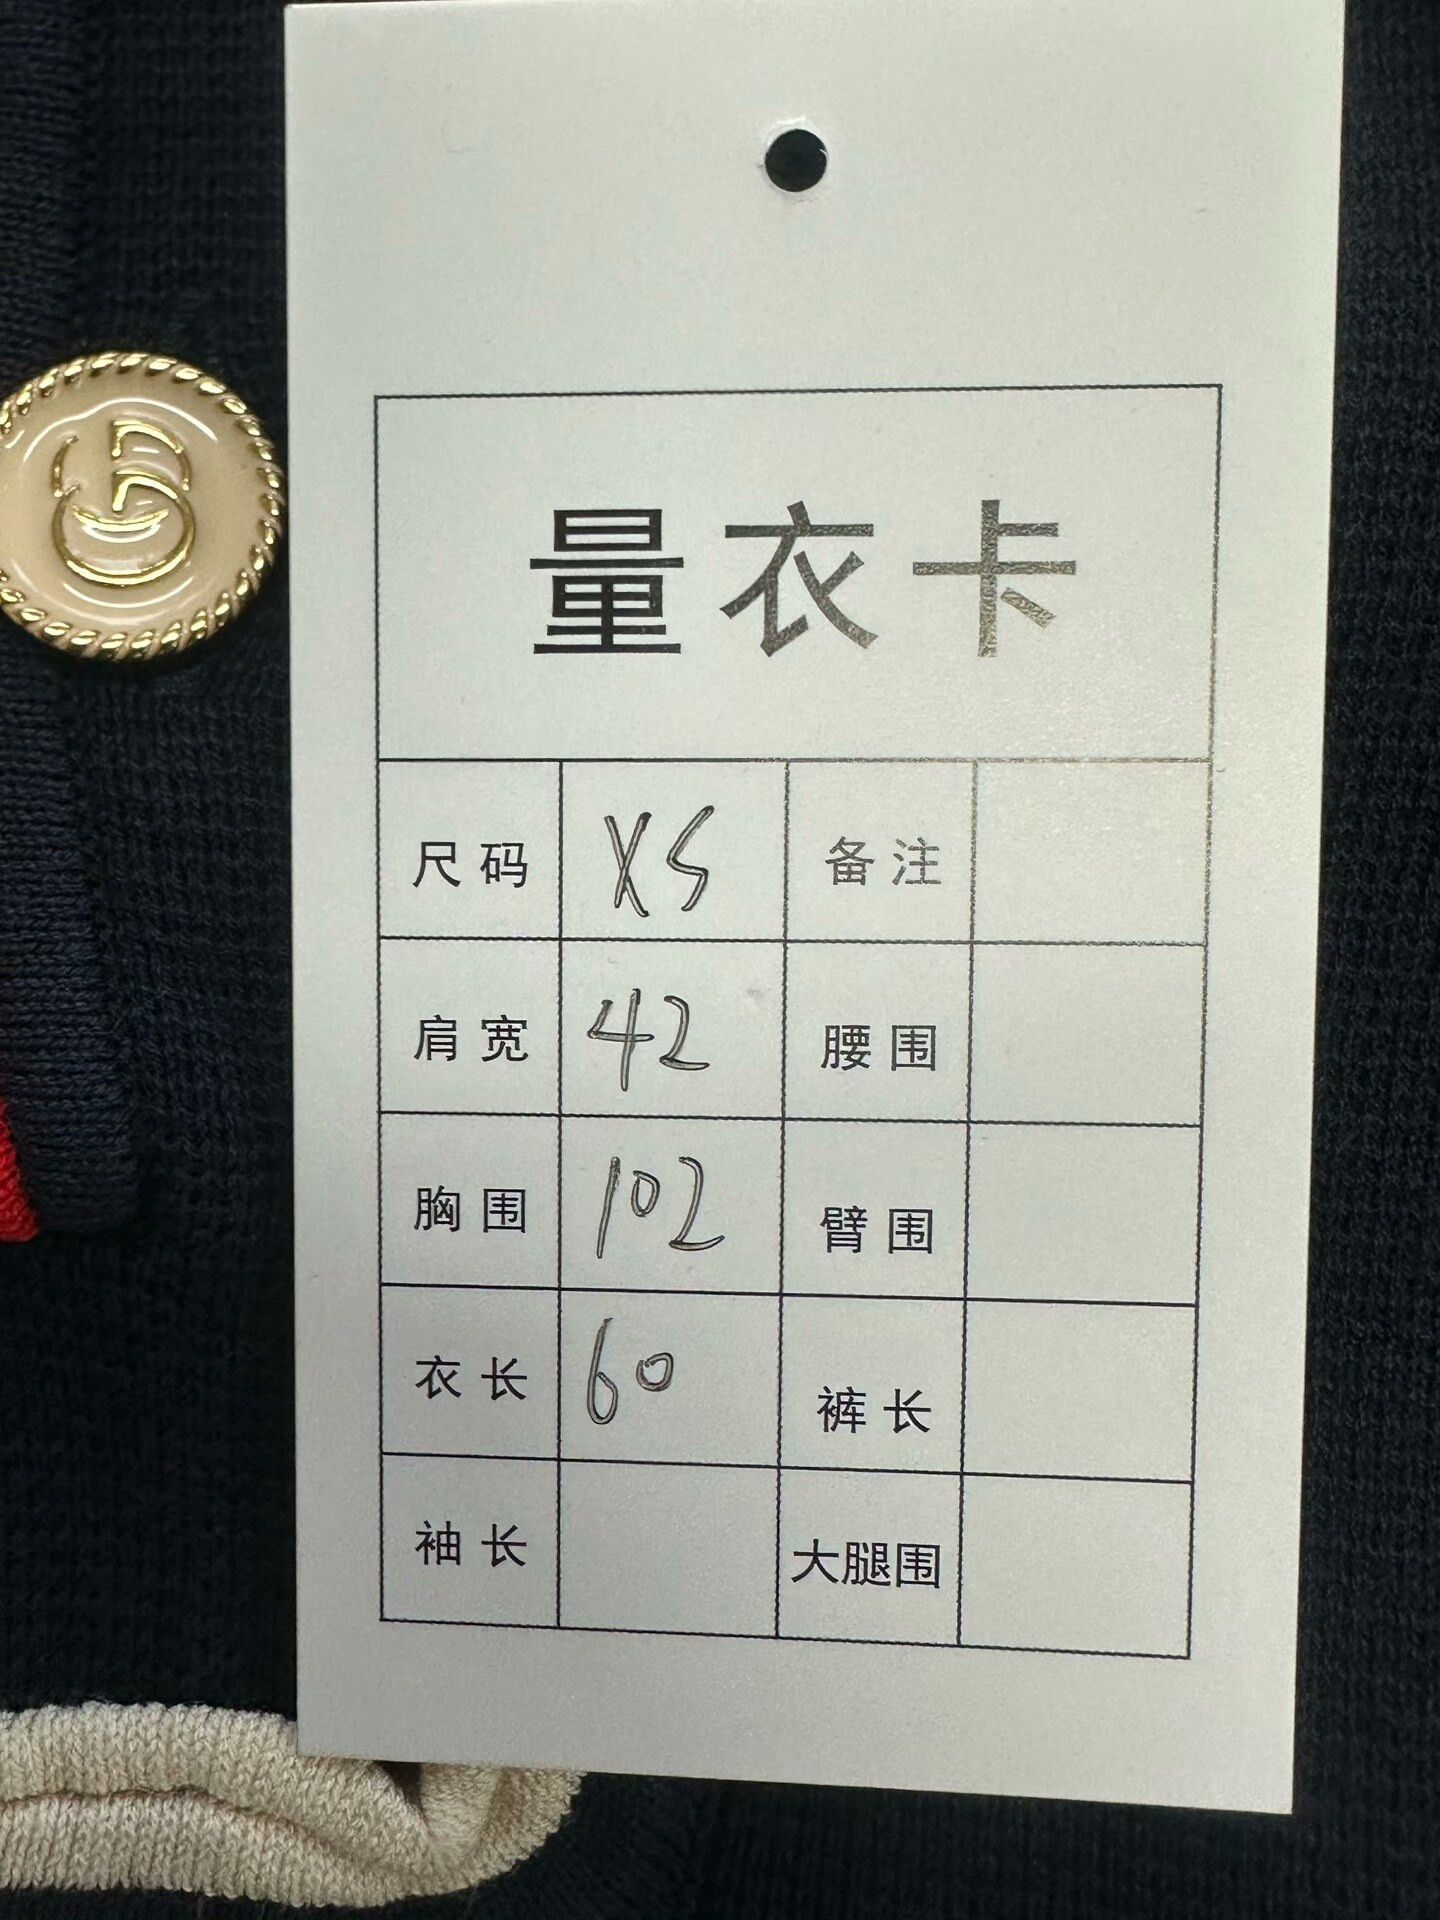 量衣卡
尺码 XS 备注
肩宽 42 腰围
胸围 102 臂围
衣长 60 裤长
袖长 大腿围